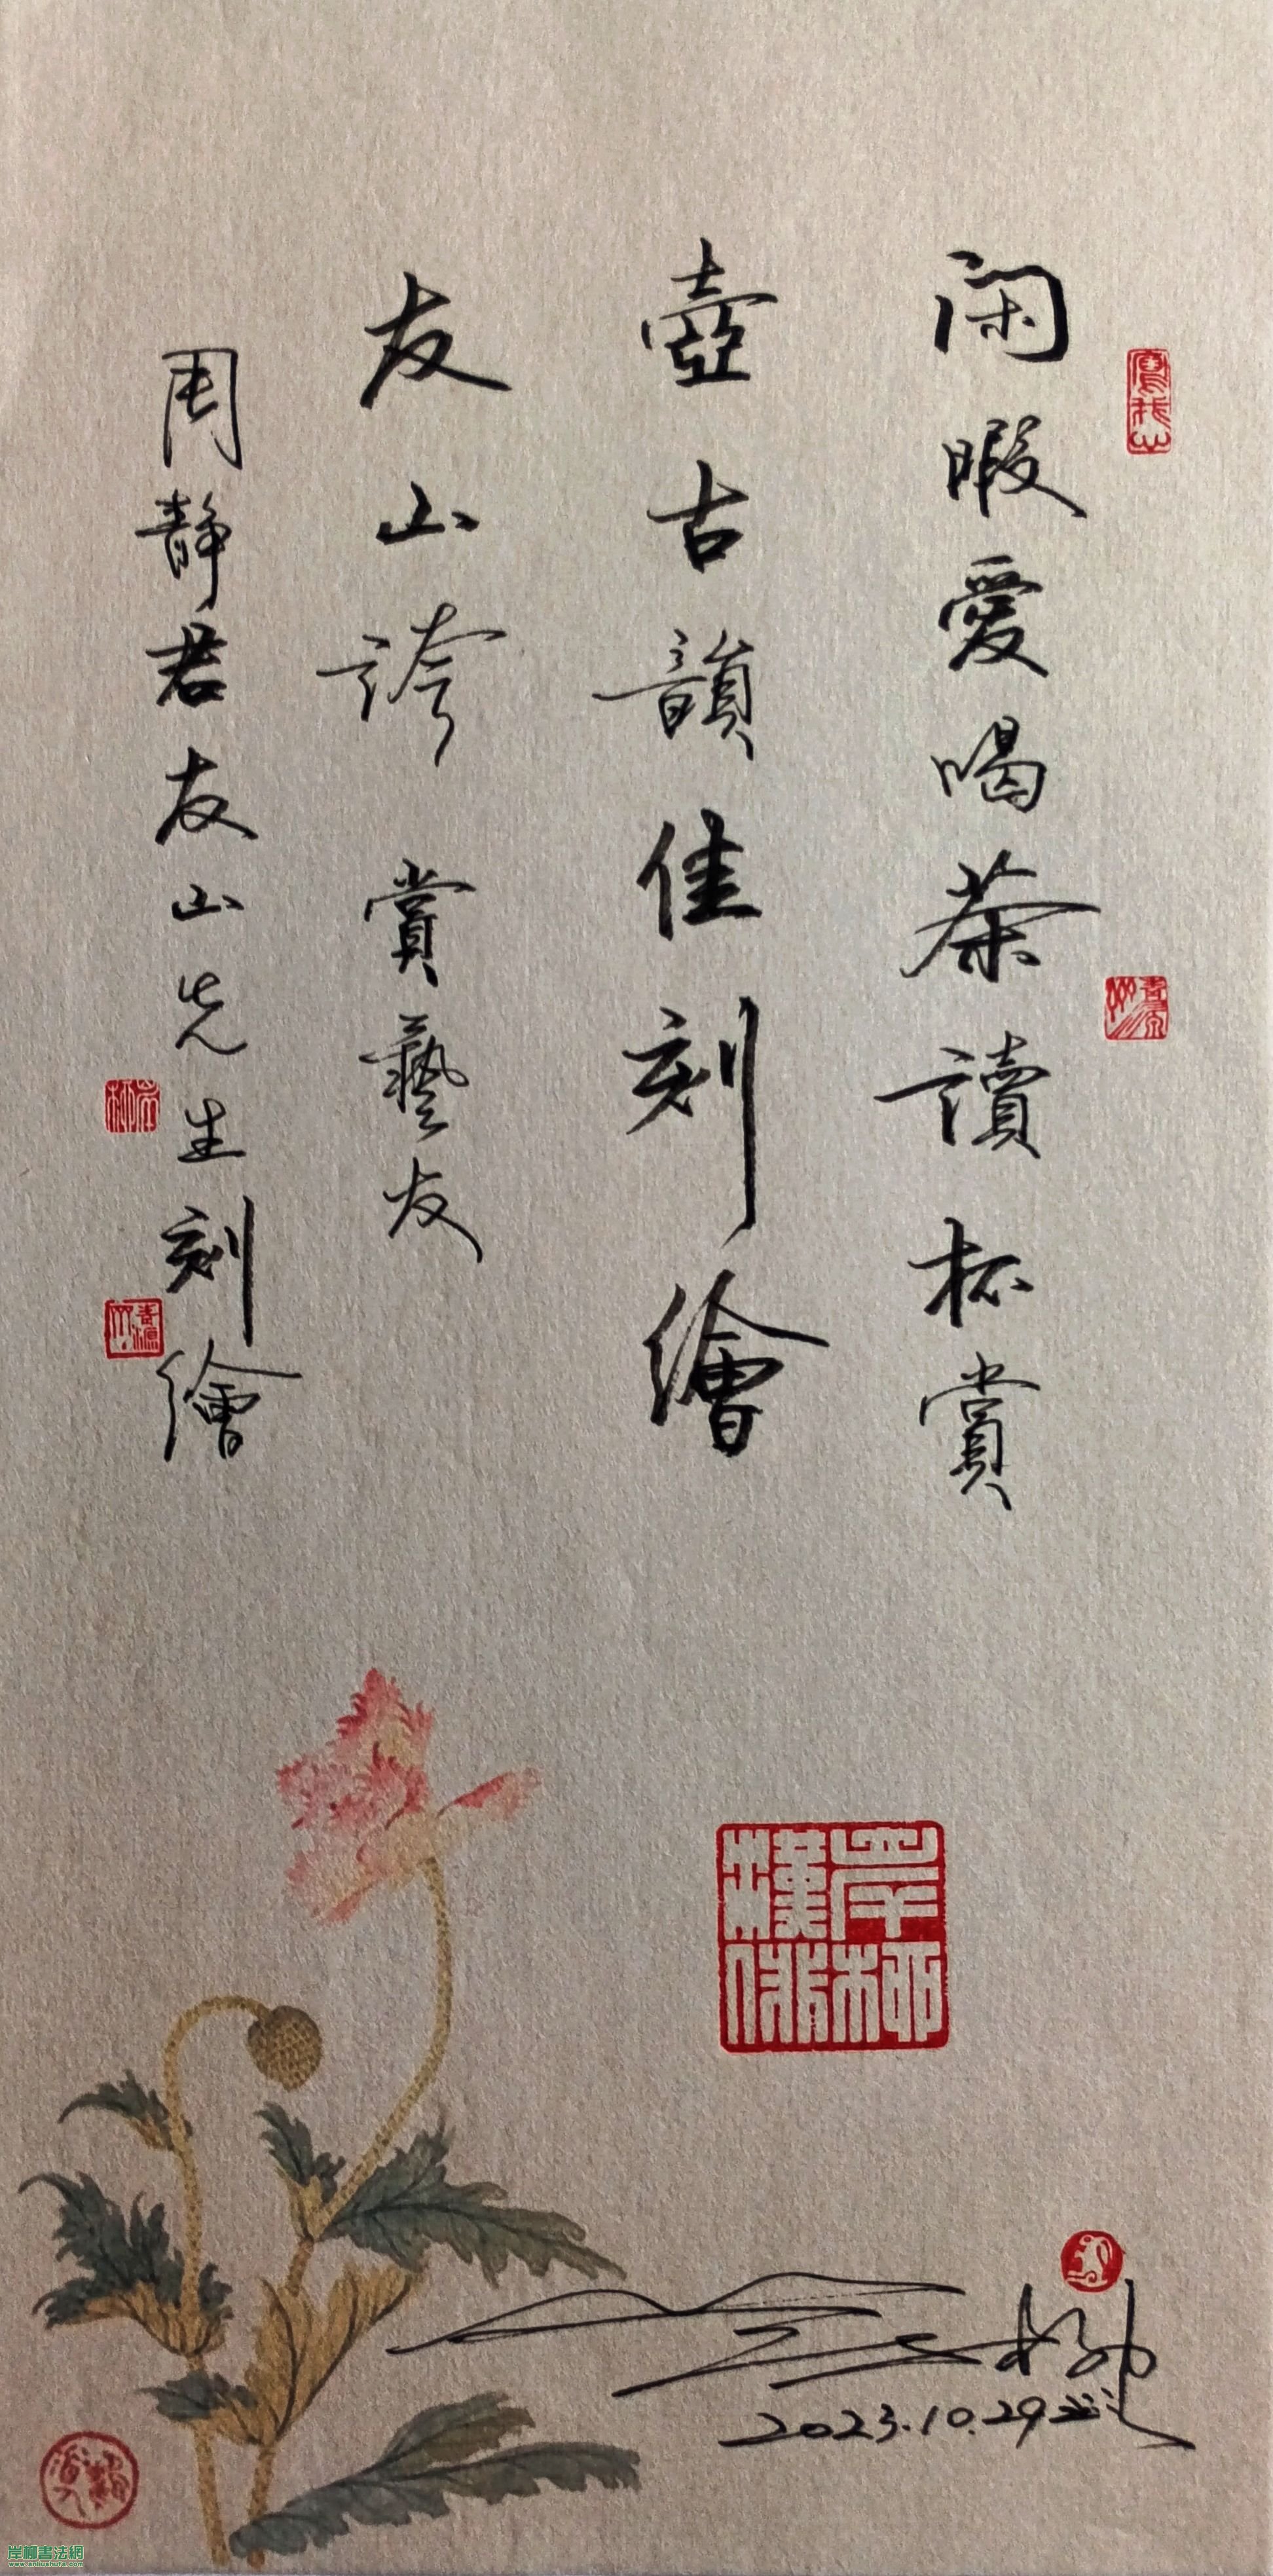 闲暇愛喝茶讀杯賞
壺古韻佳刻繪
友山誇 賞藝友
周靜君友山先生刻繪
岸柳
2023.10.29
岸柳書法網